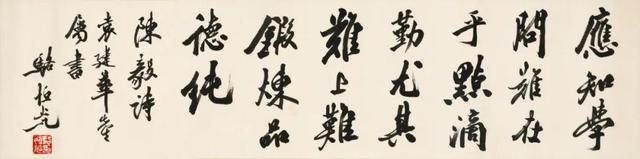 應知學
問難在
乎點滴
勤尤其
難上難
鍛煉品
德純
陳毅詩
袁建華
屬書
駱恒光